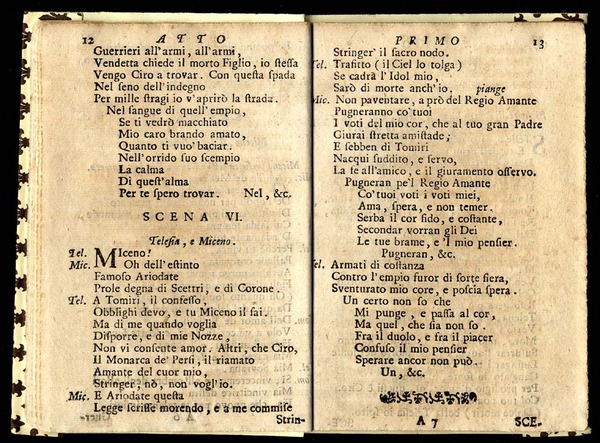 12 ATTO
Guerrieri all'armi, all'armi,
Vendetta chiede il morto Figlio, io stessa
Vengo Ciro a trovar. Con questa spada
Nel seno dell'indegno
Per mille stragi io v'aprirò la strada.
Nel sangue di quell'empio,
Se ti vedrò macchiato
Mio caro brando amato,
Quanto ti vuo' baciar.
Nell'orrido suo scempio
La calma
Di quest'alma
Per te spero trovar. Nel, &c.
SCENA VI.
Telesia, e Miceno.
Tel. MIceno!
Mic. Oh dell'estinto
Famoso Ariodate
Prole degna di Scettri, e di Corone.
Tel. A Tomiri, il confesso,
Obblighi devo, e tu Miceno il sai.
Ma di me quando voglia
Disporre, e di mie Nozze,
Non vi consente amor. Altri, che Ciro,
Il Monarca de' Persi, il riamato
Amante del cuor mio,
Stringer, nò, non vogl'io.
Mic. E Ariodate questa
Legge scrisse morendo, e a me commise
Strin-
PRIMO 13
Stringer' il sacro nodo.
Tel. Trafitto (il Ciel lo tolga)
Se cadrà l'Idol mio,
Sarò di morte anch'io. piange
Mic. Non paventare, a prò del Regio Amante
Pugneranno co'tuoi
I voti del mio cor, che al tuo gran Padre
Giurai stretta amistade;
E sebben di Tomiri
Nacqui suddito, e servo,
La fe all'amico, e il giuramento osservo.
Pugneran pe'l Regio Amante
Co'tuoi voti i voti miei,
Ama, spera, e non temer.
Serba il cor fido, e costante,
Secondar vorran gli Dei
Le tue brame, e 'l mio pensier.
Pugneran, &c.
Tel. Armati di costanza
Contro l'empio furor di sorte fiera,
Sventurato mio core, e poscia spera.
Un certo non so che
Mi punge, e passa al cor,
Ma quel, che sia non so.
Fra il duolo, e fra il piacer
Confuso il mio pensier
Sperare ancor non può.
Un, &c.
A 7 SCE-